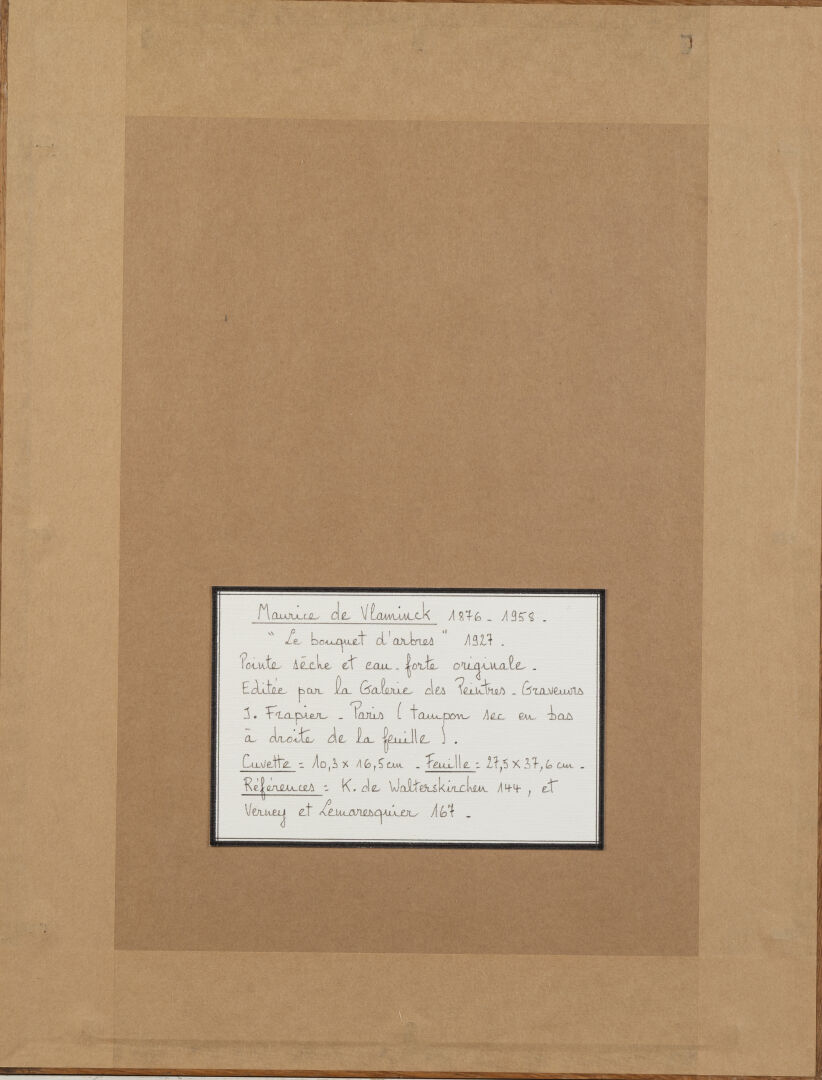 Maurice de Vlaminck 1876 - 1958 .
" Le bouquet d'arbres " 1927 .
Pointe sèche et eau-forte originale .
Editée par la Galerie des Peintres - Graveurs
J. Frapier - Paris ( tampon sec en bas
à droite de la feuille ) .
Cuvette = 10,3 x 16,5 cm - Feuille = 27,5 x 37,6 cm -
Références : K. de Walterskirchen 144 , et
Verney et Lemaresquier 167 -